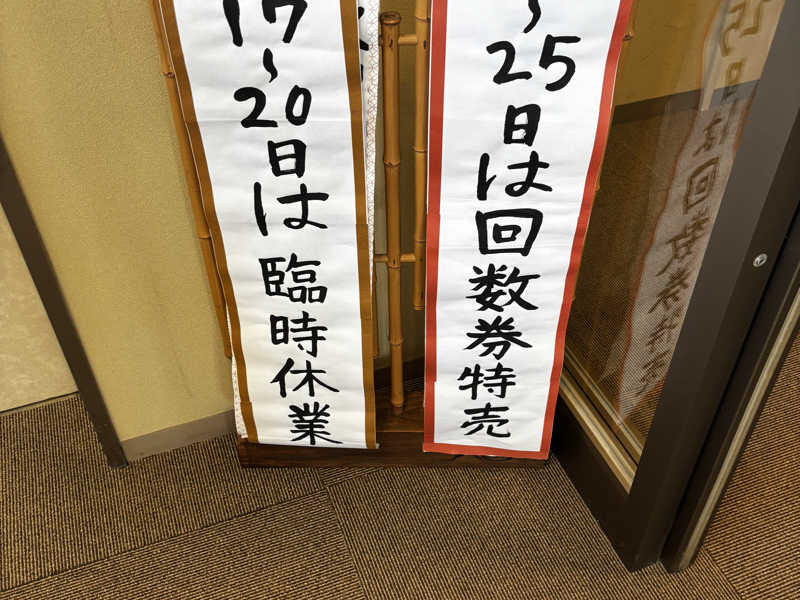 〜25日は回数券特売
17〜20日は臨時休業